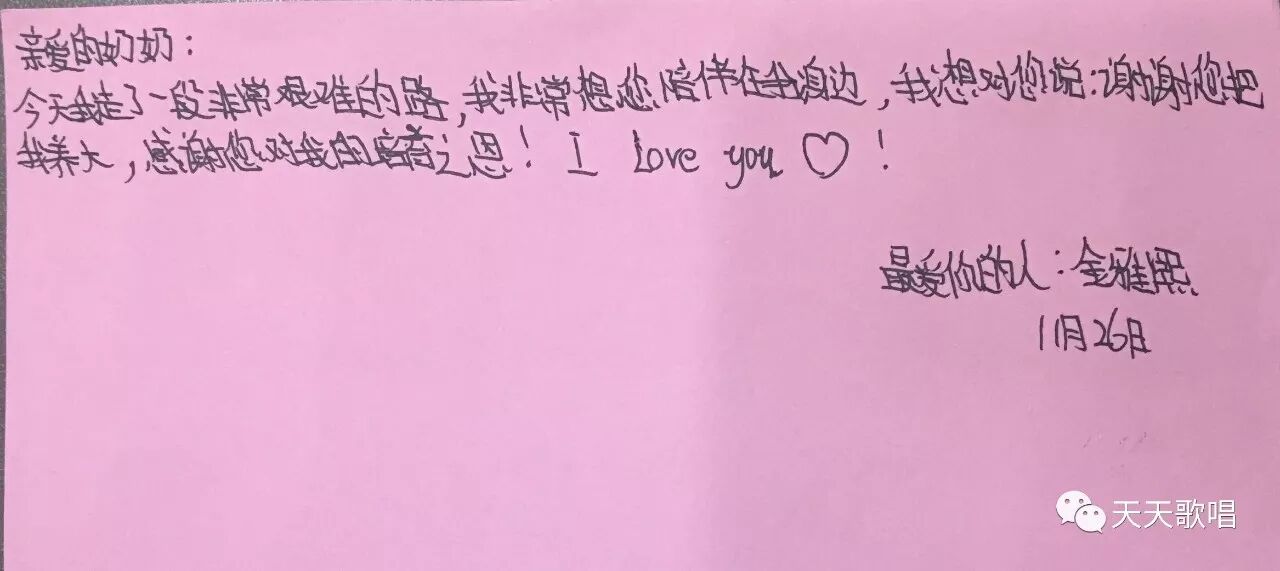 亲爱的奶奶：
今天我走了一段非常艰难的路，我非常想您陪伴在我身边，我想对您说：谢谢您把
我养大，感谢您对我的培育之恩！I Love you ♡！
最爱你的人：金雅熙
11月26日
天天歌唱